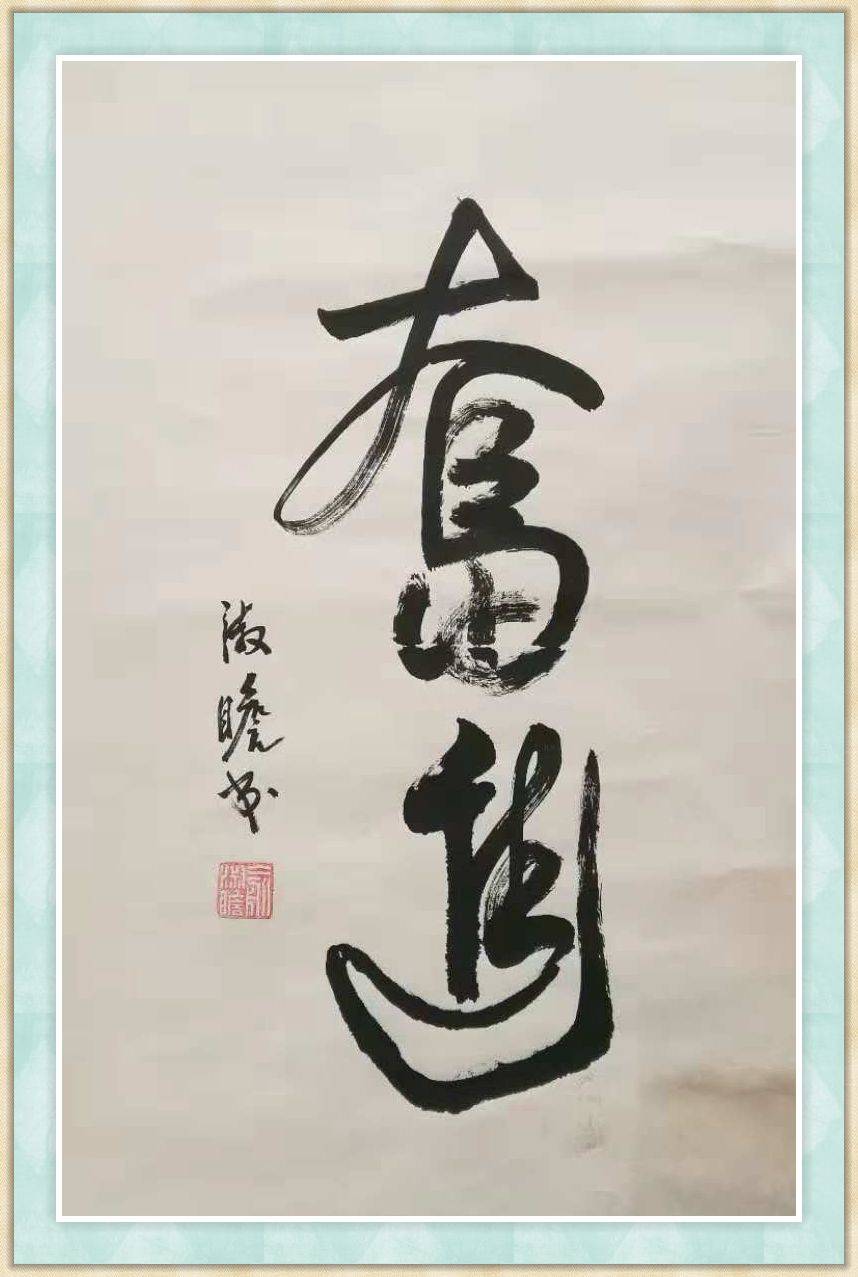 奮進
淑瞻书